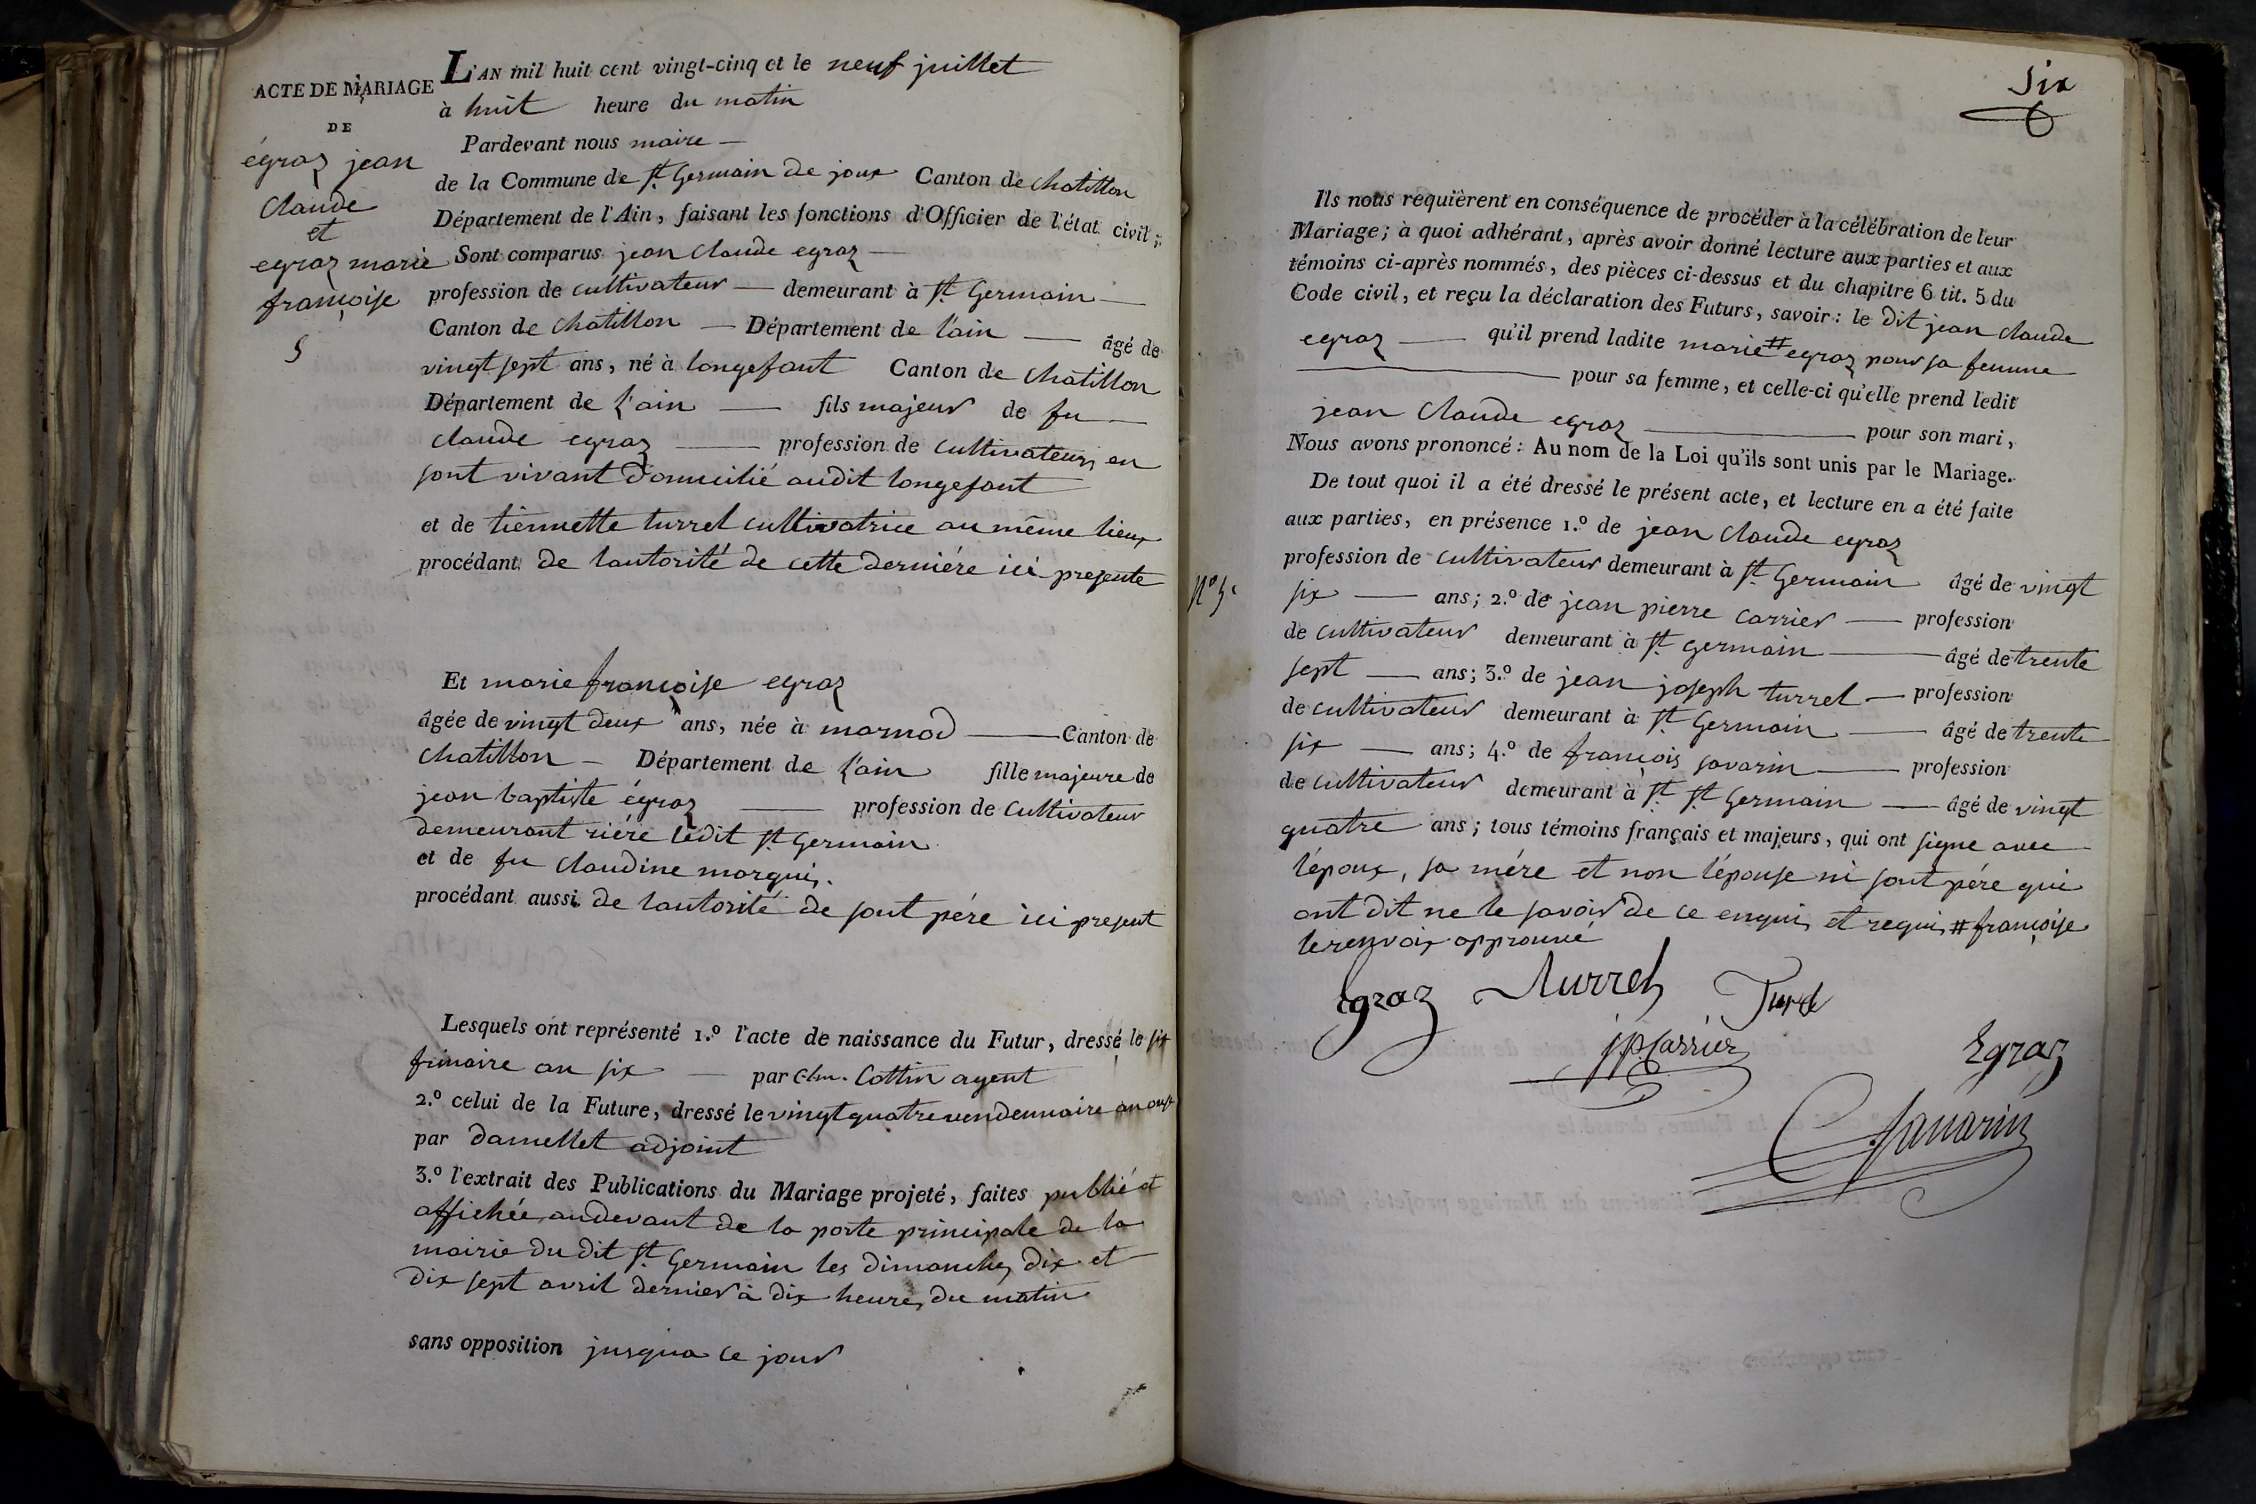 ACTE DE MARIAGE
DE
égraz jean
Claude
et
egraz marie
françoise
5
L'AN mil huit cent vingt-cinq et le neuf juillet
à huit heure du matin
Pardevant nous maire —
de la Commune de St. Germain de joux Canton de Chatillon
Département de l'Ain, faisant les fonctions d'Officier de l'état civil;
Sont comparus jean Claude egraz —
profession de cultivateur — demeurant à St. Germain —
Canton de Chatillon — Département de l'ain — âgé de
vingt sept ans, né à longefant Canton de Chatillon
Département de l'ain — fils majeur de fu —
Claude egraz — profession de cultivateur, en
sont vivant domicilié audit longefant
et de tiennette turrel cultivatrice au même lieux
procédant de lautorité de cette derniére ici presente
Et marie françoise egraz
âgée de vingt deux ans, née à marnod — Canton de
Chatillon — Département de l'ain fille majeure de
jean baptiste égraz — profession de Cultivateur
demeurant riére ledit St. Germain
et de fu Claudine marquis.
procédant aussi de lautorité de sont pére ici present
Lesquels ont représenté 1.º l'acte de naissance du Futur, dressé le six
frimaire an six — par Clm. Cottin agent
2.º celui de la Future, dressé le vingt quatre vendemiaire an onze
par Damellet adjoint
3.º l'extrait des Publications du Mariage projeté, faites publié et
affichée audevant de la porte principale de la
mairie du dit St. Germain les dimanches dix et
dix sept avril dernier à dix heures du matin
sans opposition jusqua ce jour
Six
Ils nous requièrent en conséquence de procéder à la célébration de leur
Mariage; à quoi adhérant, après avoir donné lecture aux parties et aux
témoins ci-après nommés, des pièces ci-dessus et du chapitre 6 tit. 5 du
Code civil, et reçu la déclaration des Futurs, savoir: le dit jean Claude
egraz — qu'il prend ladite marie # egraz pour sa femme
— pour sa femme, et celle-ci qu'elle prend ledit
jean Claude egraz — pour son mari,
Nous avons prononcé: Au nom de la Loi qu'ils sont unis par le Mariage.
De tout quoi il a été dressé le présent acte, et lecture en a été faite
aux parties, en présence 1.º de jean Claude egraz
profession de cultivateur demeurant à St. Germain âgé de vingt
Nº 5.
six — ans; 2.º de jean pierre Carrier — profession
de cultivateur demeurant à St. germain — âgé de trente
sept — ans; 3.º de jean joseph turrel — profession
de cultivateur demeurant à St. Germain — âgé de trente
six — ans; 4.º de françois savarin — profession
de cultivateur demeurant à St. St. Germain — âgé de vingt
quatre ans; tous témoins français et majeurs, qui ont signe avec
lépoux, sa mére et non lépouse ni sont pére qui
ont dit ne le savoir de ce enquis et requis # françoise
le renvoix approuvé
Egraz Turrel Turel
jp Carrier Egraz
f Savarin